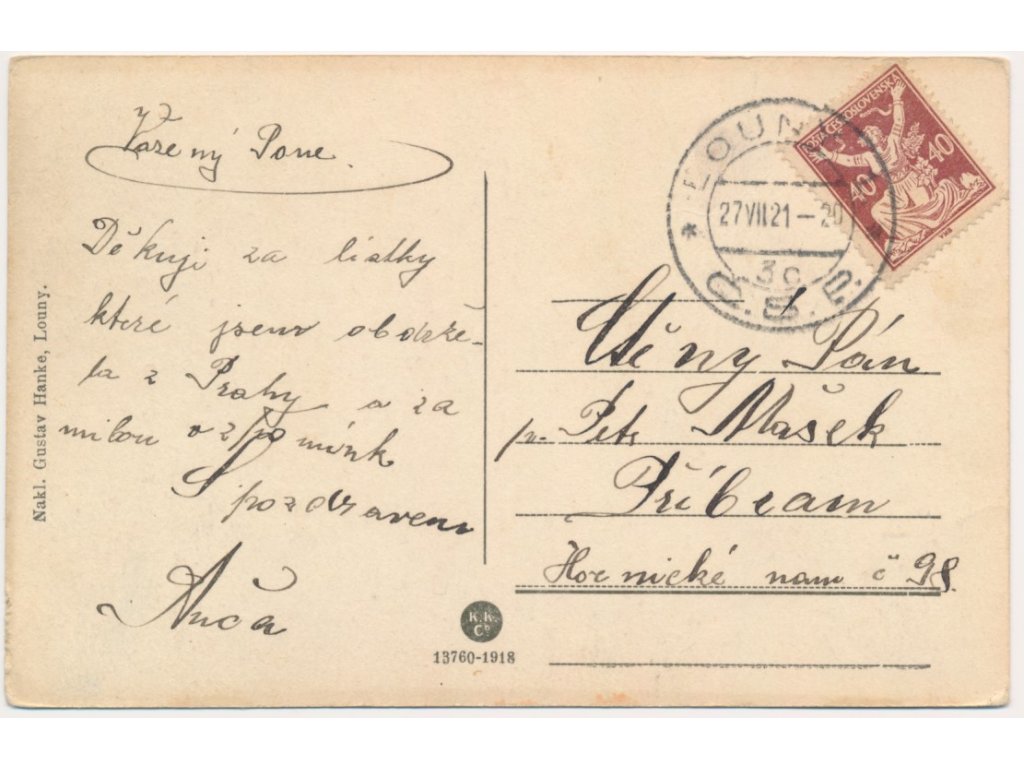 Vážený Pane.
Děkuji za lístky
které jsem obdrže-
la z Prahy a za
milou vzpomínk
S pozdravem
Anča
Nakl. Gustav Hanke, Louny.
K.K.
Co
13760-1918
LOUNY
27VII21-20
3c
Č.S.P.
POŠTA ČESKOSLOVENSKA
40
40
Ctěný Pán
p. Petr Mašek
Příbram
Hornické nam č 98.